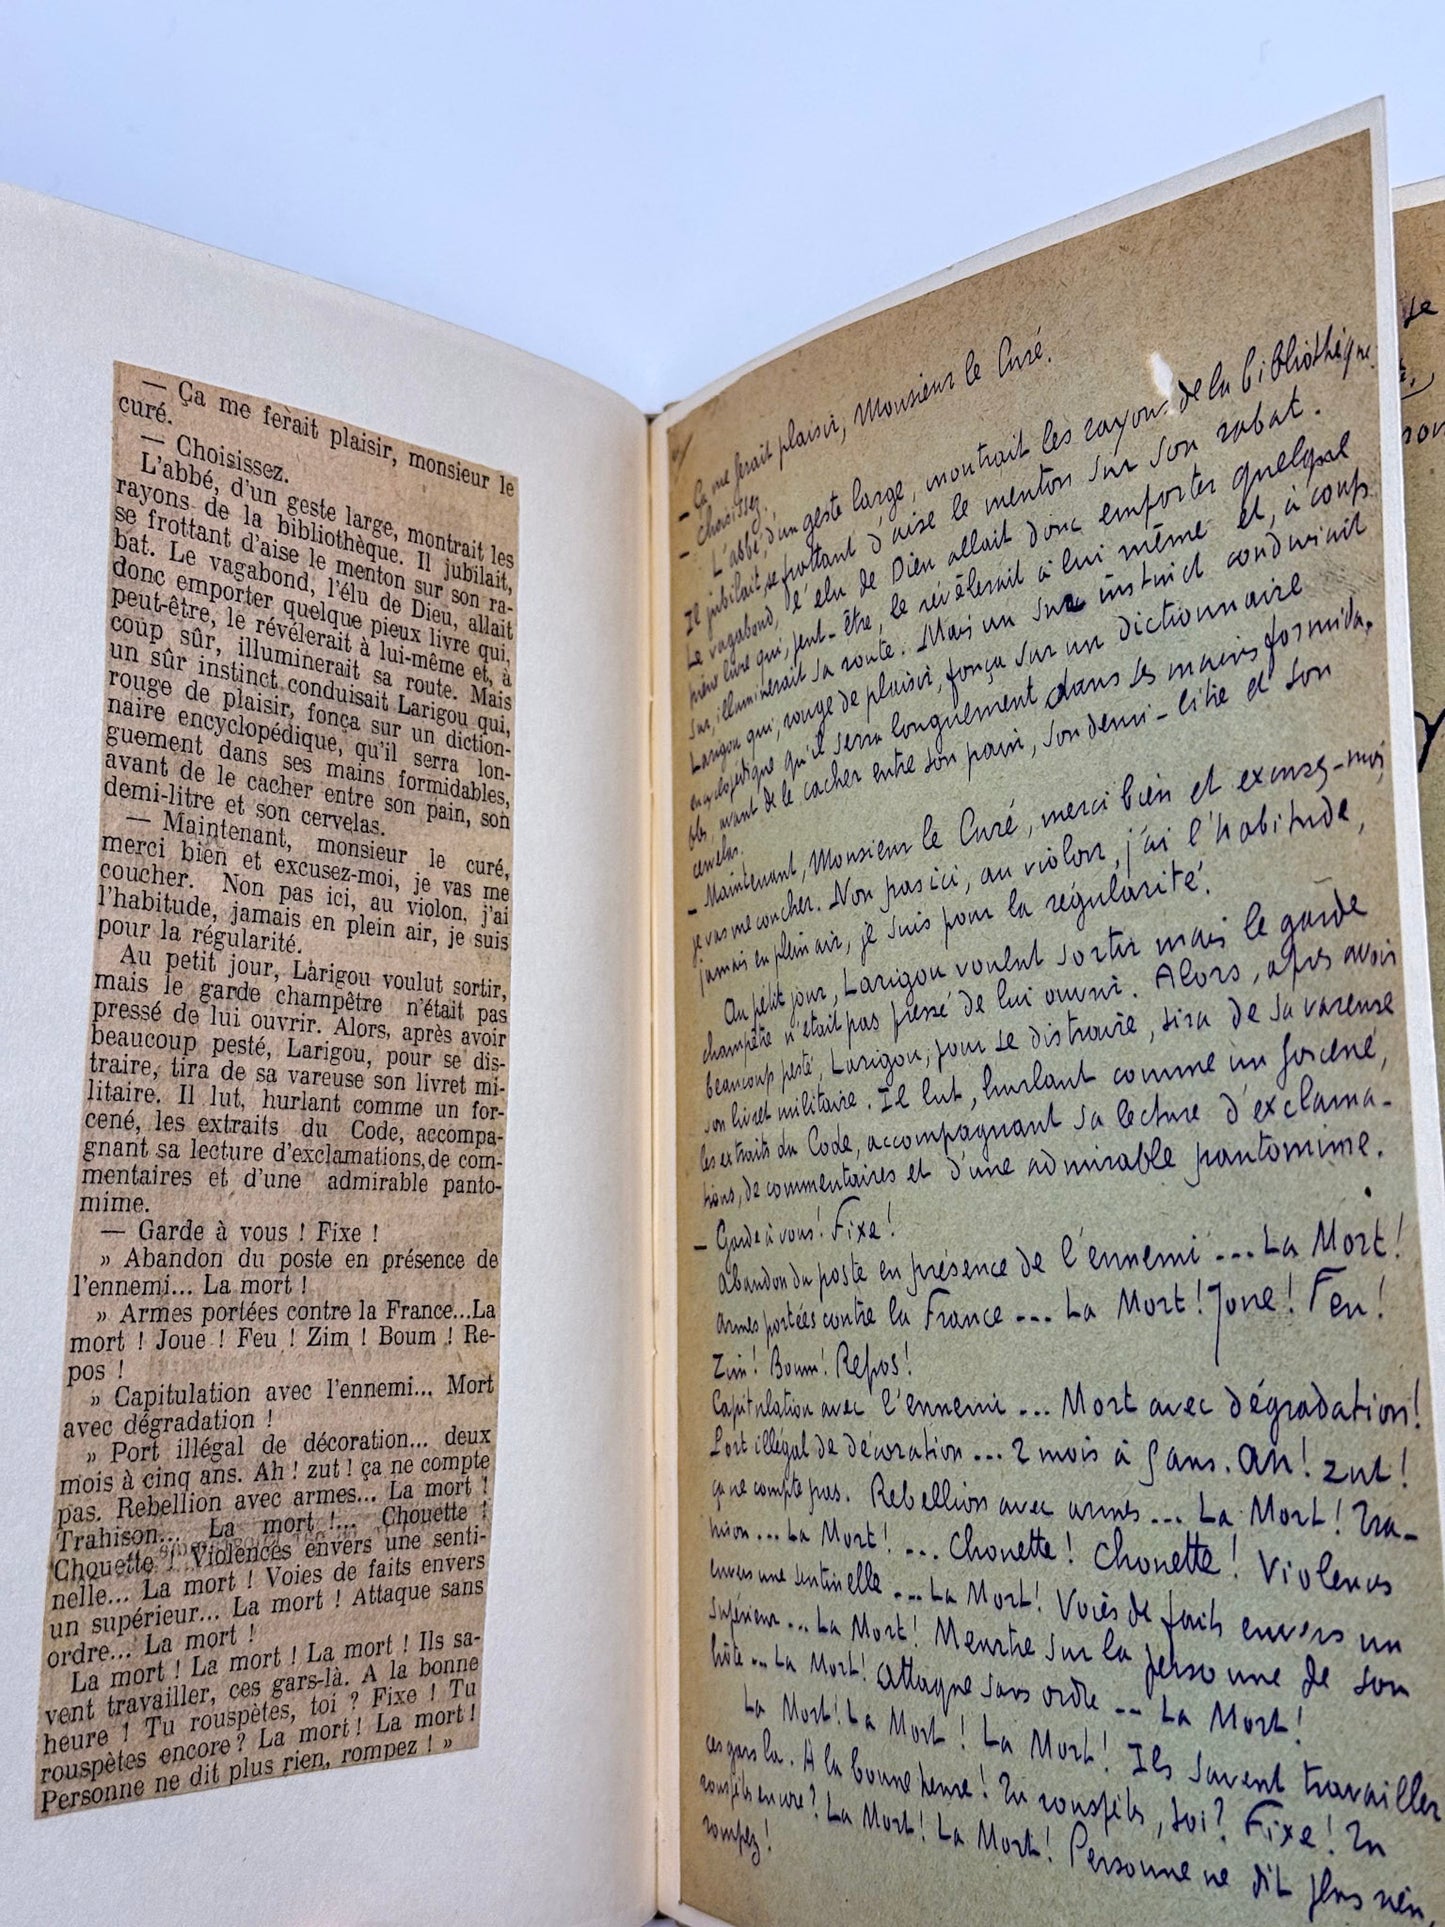 — Ça me ferait plaisir, monsieur le
curé.
— Choisissez.
L'abbé, d'un geste large, montrait les
rayons de la bibliothèque. Il jubilait,
se frottant d'aise le menton sur son ra-
bat. Le vagabond, l'élu de Dieu, allait
donc emporter quelque pieux livre qui,
peut-être, le révélerait à lui-même et, à
coup sûr, illuminerait sa route. Mais
un sûr instinct conduisait Larigou qui,
rouge de plaisir, fonça sur un diction-
naire encyclopédique, qu'il serra lon-
guement dans ses mains formidables,
avant de le cacher entre son pain, son
demi-litre et son cervelas.
— Maintenant, monsieur le curé,
merci bien et excusez-moi, je vas me
coucher. Non pas ici, au violon, j'ai
l'habitude, jamais en plein air, je suis
pour la régularité.
Au petit jour, Larigou voulut sortir,
mais le garde champêtre n'était pas
pressé de lui ouvrir. Alors, après avoir
beaucoup pesté, Larigou, pour se dis-
traire, tira de sa vareuse son livret mi-
litaire. Il lut, hurlant comme un for-
cené, les extraits du Code, accompa-
gnant sa lecture d'exclamations, de com-
mentaires et d'une admirable panto-
mime.
— Garde à vous ! Fixe !
» Abandon du poste en présence de
l'ennemi... La mort !
» Armes portées contre la France...La
mort ! Joue ! Feu ! Zim ! Boum ! Re-
pos !
» Capitulation avec l'ennemi... Mort
avec dégradation !
» Port illégal de décoration... deux
mois à cinq ans. Ah ! zut ! ça ne compte
pas. Rebellion avec armes... La mort !
Trahison... La mort !... Chouette !
Chouette ! Violences envers une senti-
nelle... La mort ! Voies de faits envers
un supérieur... La mort ! Attaque sans
ordre... La mort !
La mort ! La mort ! La mort ! Ils sa-
vent travailler, ces gars-là. A la bonne
heure ! Tu rouspètes, toi ? Fixe ! Tu
rouspètes encore ? La mort ! La mort !
Personne ne dit plus rien, rompez ! »
— Ça me ferait plaisir, Monsieur le Curé.
— Choisissez.
L'abbé, d'un geste large, montrait les rayons de la bibliothèque.
Il jubilait, se frottant d'aise le menton sur son rabat.
Le vagabond, l'élu de Dieu allait donc emporter quelque
pieux livre qui, peut-être, le révélerait à lui même et, à coup
sur, illuminerait sa route. Mais un sur instinct conduisait
Larigou qui, rouge de plaisir, fonça sur un dictionnaire
encyclopédique qu'il serra longuement dans ses mains formida-
bles, avant de le cacher entre son pain, son demi-litre et son
cervelas.
— Maintenant, Monsieur le Curé, merci bien et excusez-moi,
je vas me coucher. Non pas ici, au violon, j'ai l'habitude,
jamais en plein air, je suis pour la régularité.
Au petit jour, Larigou voulut sortir mais le garde
champêtre n'était pas pressé de lui ouvrir. Alors, après avoir
beaucoup pesté, Larigou, pour se distraire, tira de sa vareuse
son livret militaire. Il lut, hurlant comme un forcené,
les extraits du Code, accompagnant sa lecture d'exclama-
tions, de commentaires et d'une admirable pantomime.
— Garde à vous ! Fixe !
Abandon du poste en présence de l'ennemi ... La Mort !
Armes portées contre la France ... La Mort ! Joue ! Feu !
Zim ! Boum ! Repos !
Capitulation avec l'ennemi ... Mort avec dégradation !
Port illégal de décoration ... 2 mois à 5 ans. Ah ! zut !
ça ne compte pas. Rebellion avec armes ... La Mort ! Tra-
hison ... La Mort ! ... Chouette ! Chouette ! Violences
envers une sentinelle ... La Mort ! Voies de faits envers un
supérieur ... La Mort ! Meurtre sur la personne de son
hôte ... La Mort ! Attaque sans ordre ... La Mort !
La Mort ! La Mort ! La Mort ! Ils savent travailler
ces gars la. A la bonne heure ! Tu rouspètes, toi ? Fixe ! Tu
rouspètes encore ? La Mort ! La Mort ! Personne ne dit plus rien,
rompez !